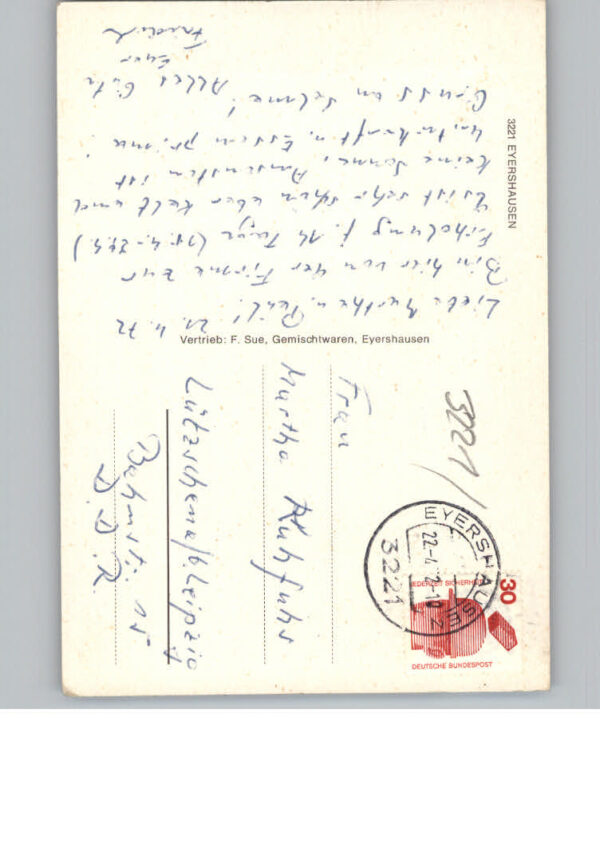 3221 EYERSHAUSEN
Vertrieb: F. Sue, Gemischtwaren, Eyershausen
21.4.72
Liebe Martha u. Paul!
Bin hier von der Firma zur
Erholung f. 14 Tage
Es ist sehr schön aber kalt und
keine Sonne. Ansonsten ist
Unterkunft u. Essen prima.
Gruss an Selma!
Alles Gute
Euer
Friedrich
3221
EYERSHAUSEN
22-4
3221
30
JEDERZEIT SICHERHEIT
DEUTSCHE BUNDESPOST
Frau
Martha Kuhfuhs
Lützschena/b Leipzig
Bahnstr. 15
D.D.R.